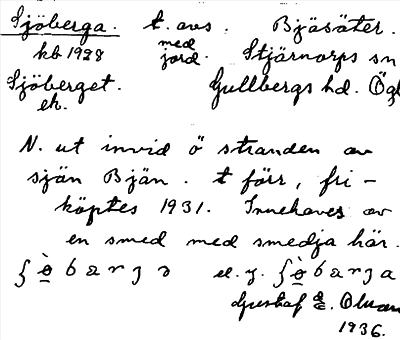 Sjöberga. t. avs. Bjäsäter.
kb 1928 med jord. Stjärnorps sn
Sjöberget. Gullbergs hd. Ögl
ek.
N. ut invid ö stranden av
sjän Bjän. t förr, fri-
köptes 1931. Innehaves av
en smed med smedja här.
el. y.
Gustaf E. Olsson
1936.